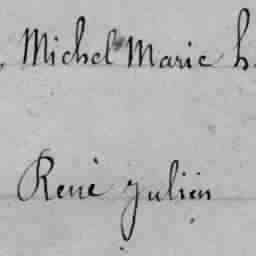 Michel Marie h.
René Julien